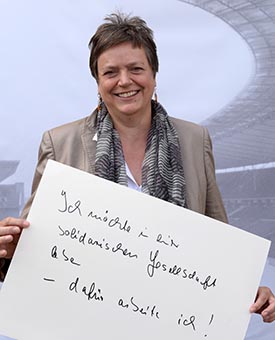 Ich möchte in einer
solidarischen Gesellschaft
leben
– dafür arbeite ich!